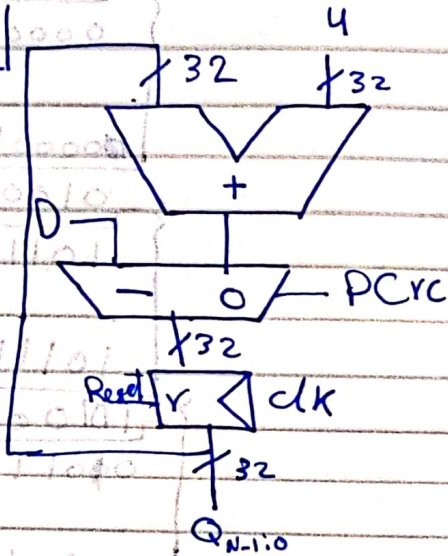 4
32
32
+
D
1
0
PCrc
32
Reset
r
clk
32
Q N-1:0